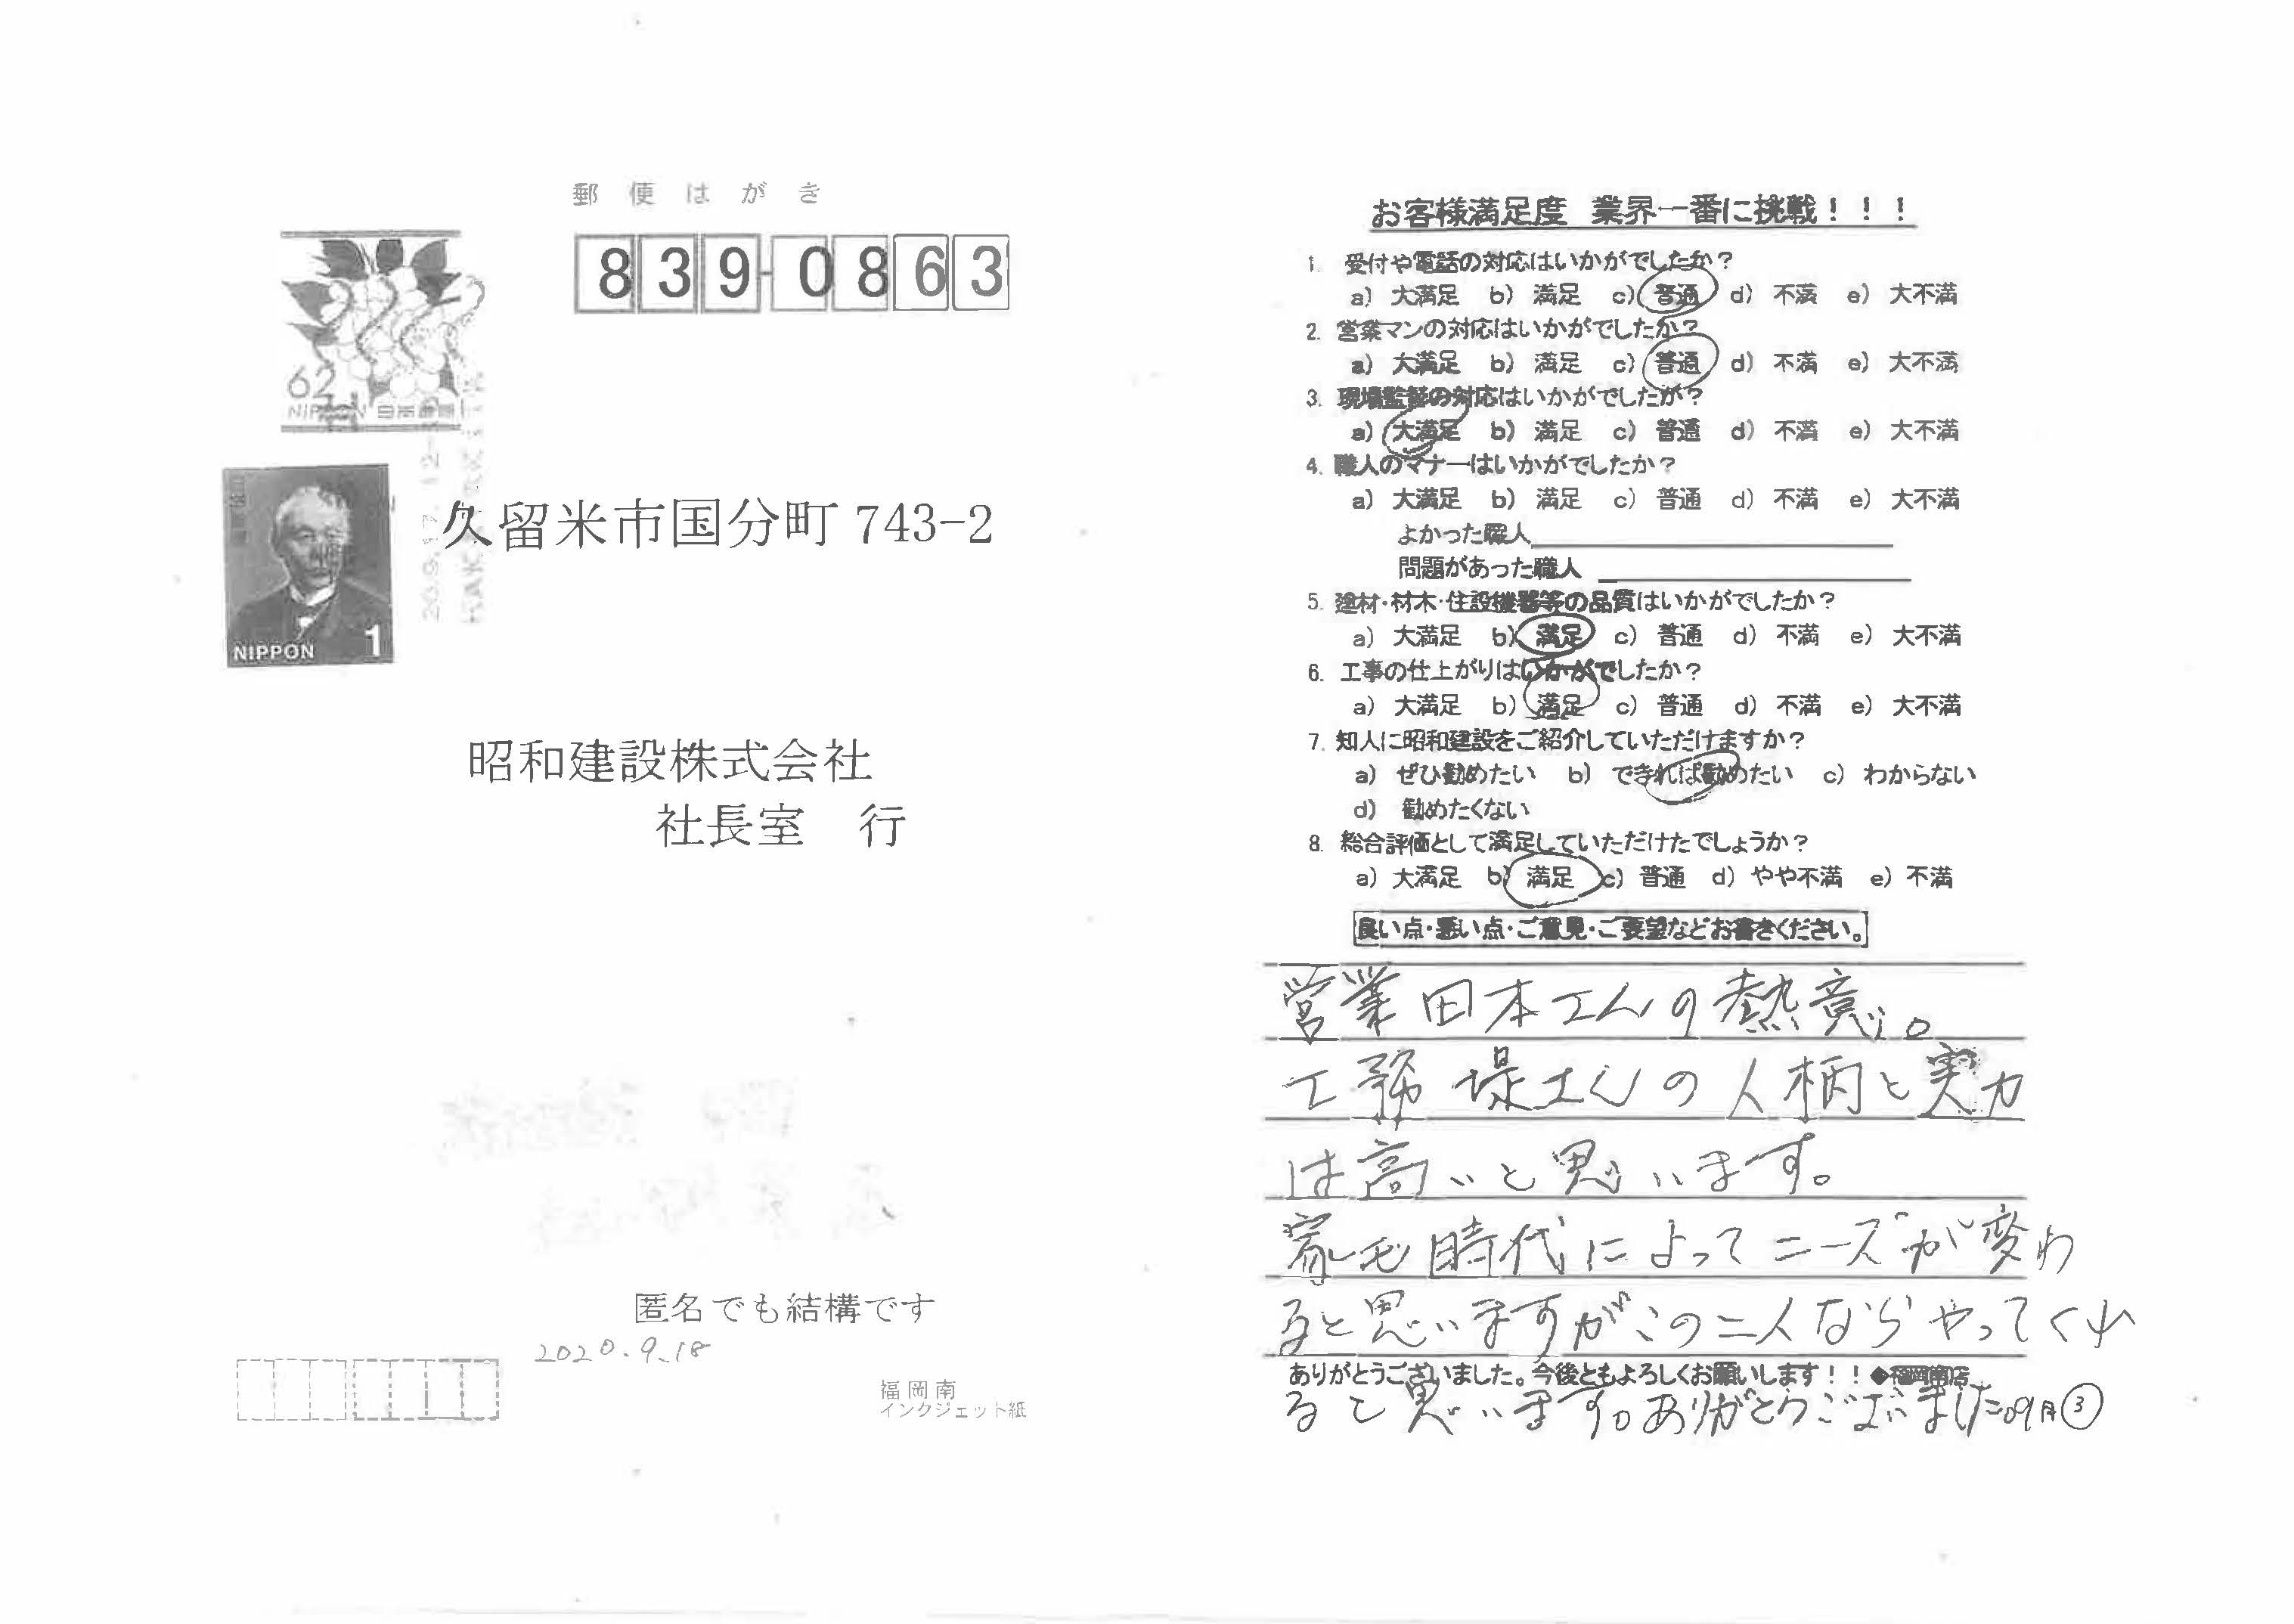 郵便はがき
839-0863
62
NIPPON 日本郵便
20.9.17.12-
NIPPON 1
久留米市国分町 743-2
昭和建設株式会社
社長室 行
匿名でも結構です
2020.9.18
福岡南
インクジェット紙
お客様満足度 業界一番に挑戦！！！
1. 受付や電話の対応はいかがでしたか？
a) 大満足 b) 満足 c) 普通 d) 不満 e) 大不満
2. 営業マンの対応はいかがでしたか？
a) 大満足 b) 満足 c) 普通 d) 不満 e) 大不満
3. 現場監督の対応はいかがでしたか？
a) 大満足 b) 満足 c) 普通 d) 不満 e) 大不満
4. 職人のマナーはいかがでしたか？
a) 大満足 b) 満足 c) 普通 d) 不満 e) 大不満
よかった職人
問題があった職人
5. 塗材・材木・住設機器等の品質はいかがでしたか？
a) 大満足 b) 満足 c) 普通 d) 不満 e) 大不満
6. 工事の仕上がりはいかがでしたか？
a) 大満足 b) 満足 c) 普通 d) 不満 e) 大不満
7. 知人に昭和建設をご紹介していただけますか？
a) ぜひ勧めたい b) できれば勧めたい c) わからない
d) 勧めたくない
8. 総合評価として満足していただけたでしょうか？
a) 大満足 b) 満足 c) 普通 d) やや不満 e) 不満
良い点・悪い点・ご意見・ご要望などお書きください。
営業 田本さんの熱意。
工務 堤さんの人柄と実力
は高いと思います。
家も時代によってニーズが変わ
ると思いますがこの二人ならやってくれ
ありがとうございました。今後ともよろしくお願いします！！◆福岡南店
ると思います。ありがとうございました。9月③